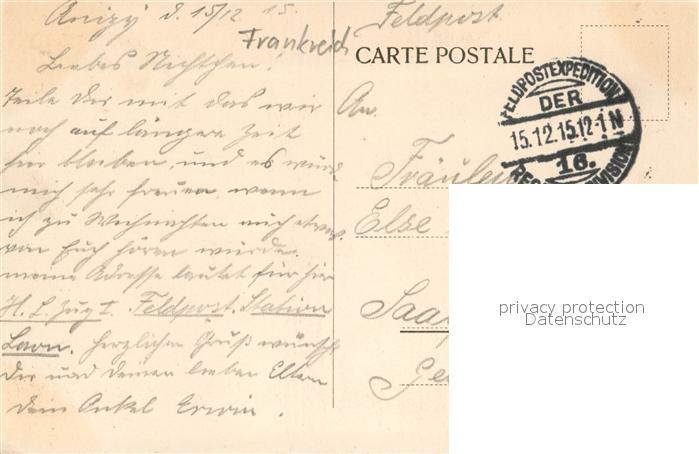 Anizy d. 15/12 15.
Frankreich
Liebes Nichtchen!
Teile Dir mit das wir
noch auf längere Zeit
hier bleiben, und es würde
mich sehr freuen, wenn
ich zu Weihnachten auch etwas
von Euch hören würde.
meine Adresse lautet für hier
H. L. Zug I. Feldpost. Station
Laon. Herzlichen Gruß wünscht
Dir und deinen lieben Eltern
dein Onkel Erwin.
Feldpost.
CARTE POSTALE
FELDPOSTEXPEDITION
DER
15.12.15.12-1 N
16.
RES DIVISION
An
Fräulein
Else
Saar
Ge
privacy protection
Datenschutz